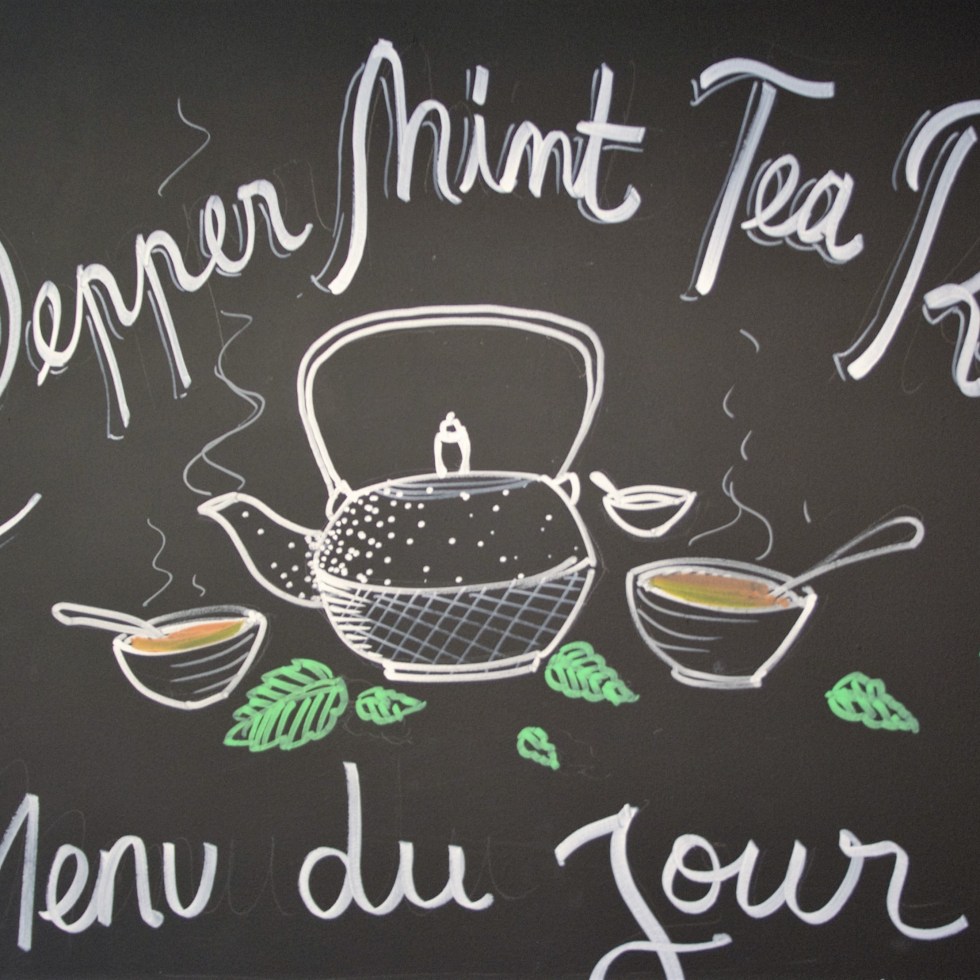 Pepper Mint Tea
Menu du Jour